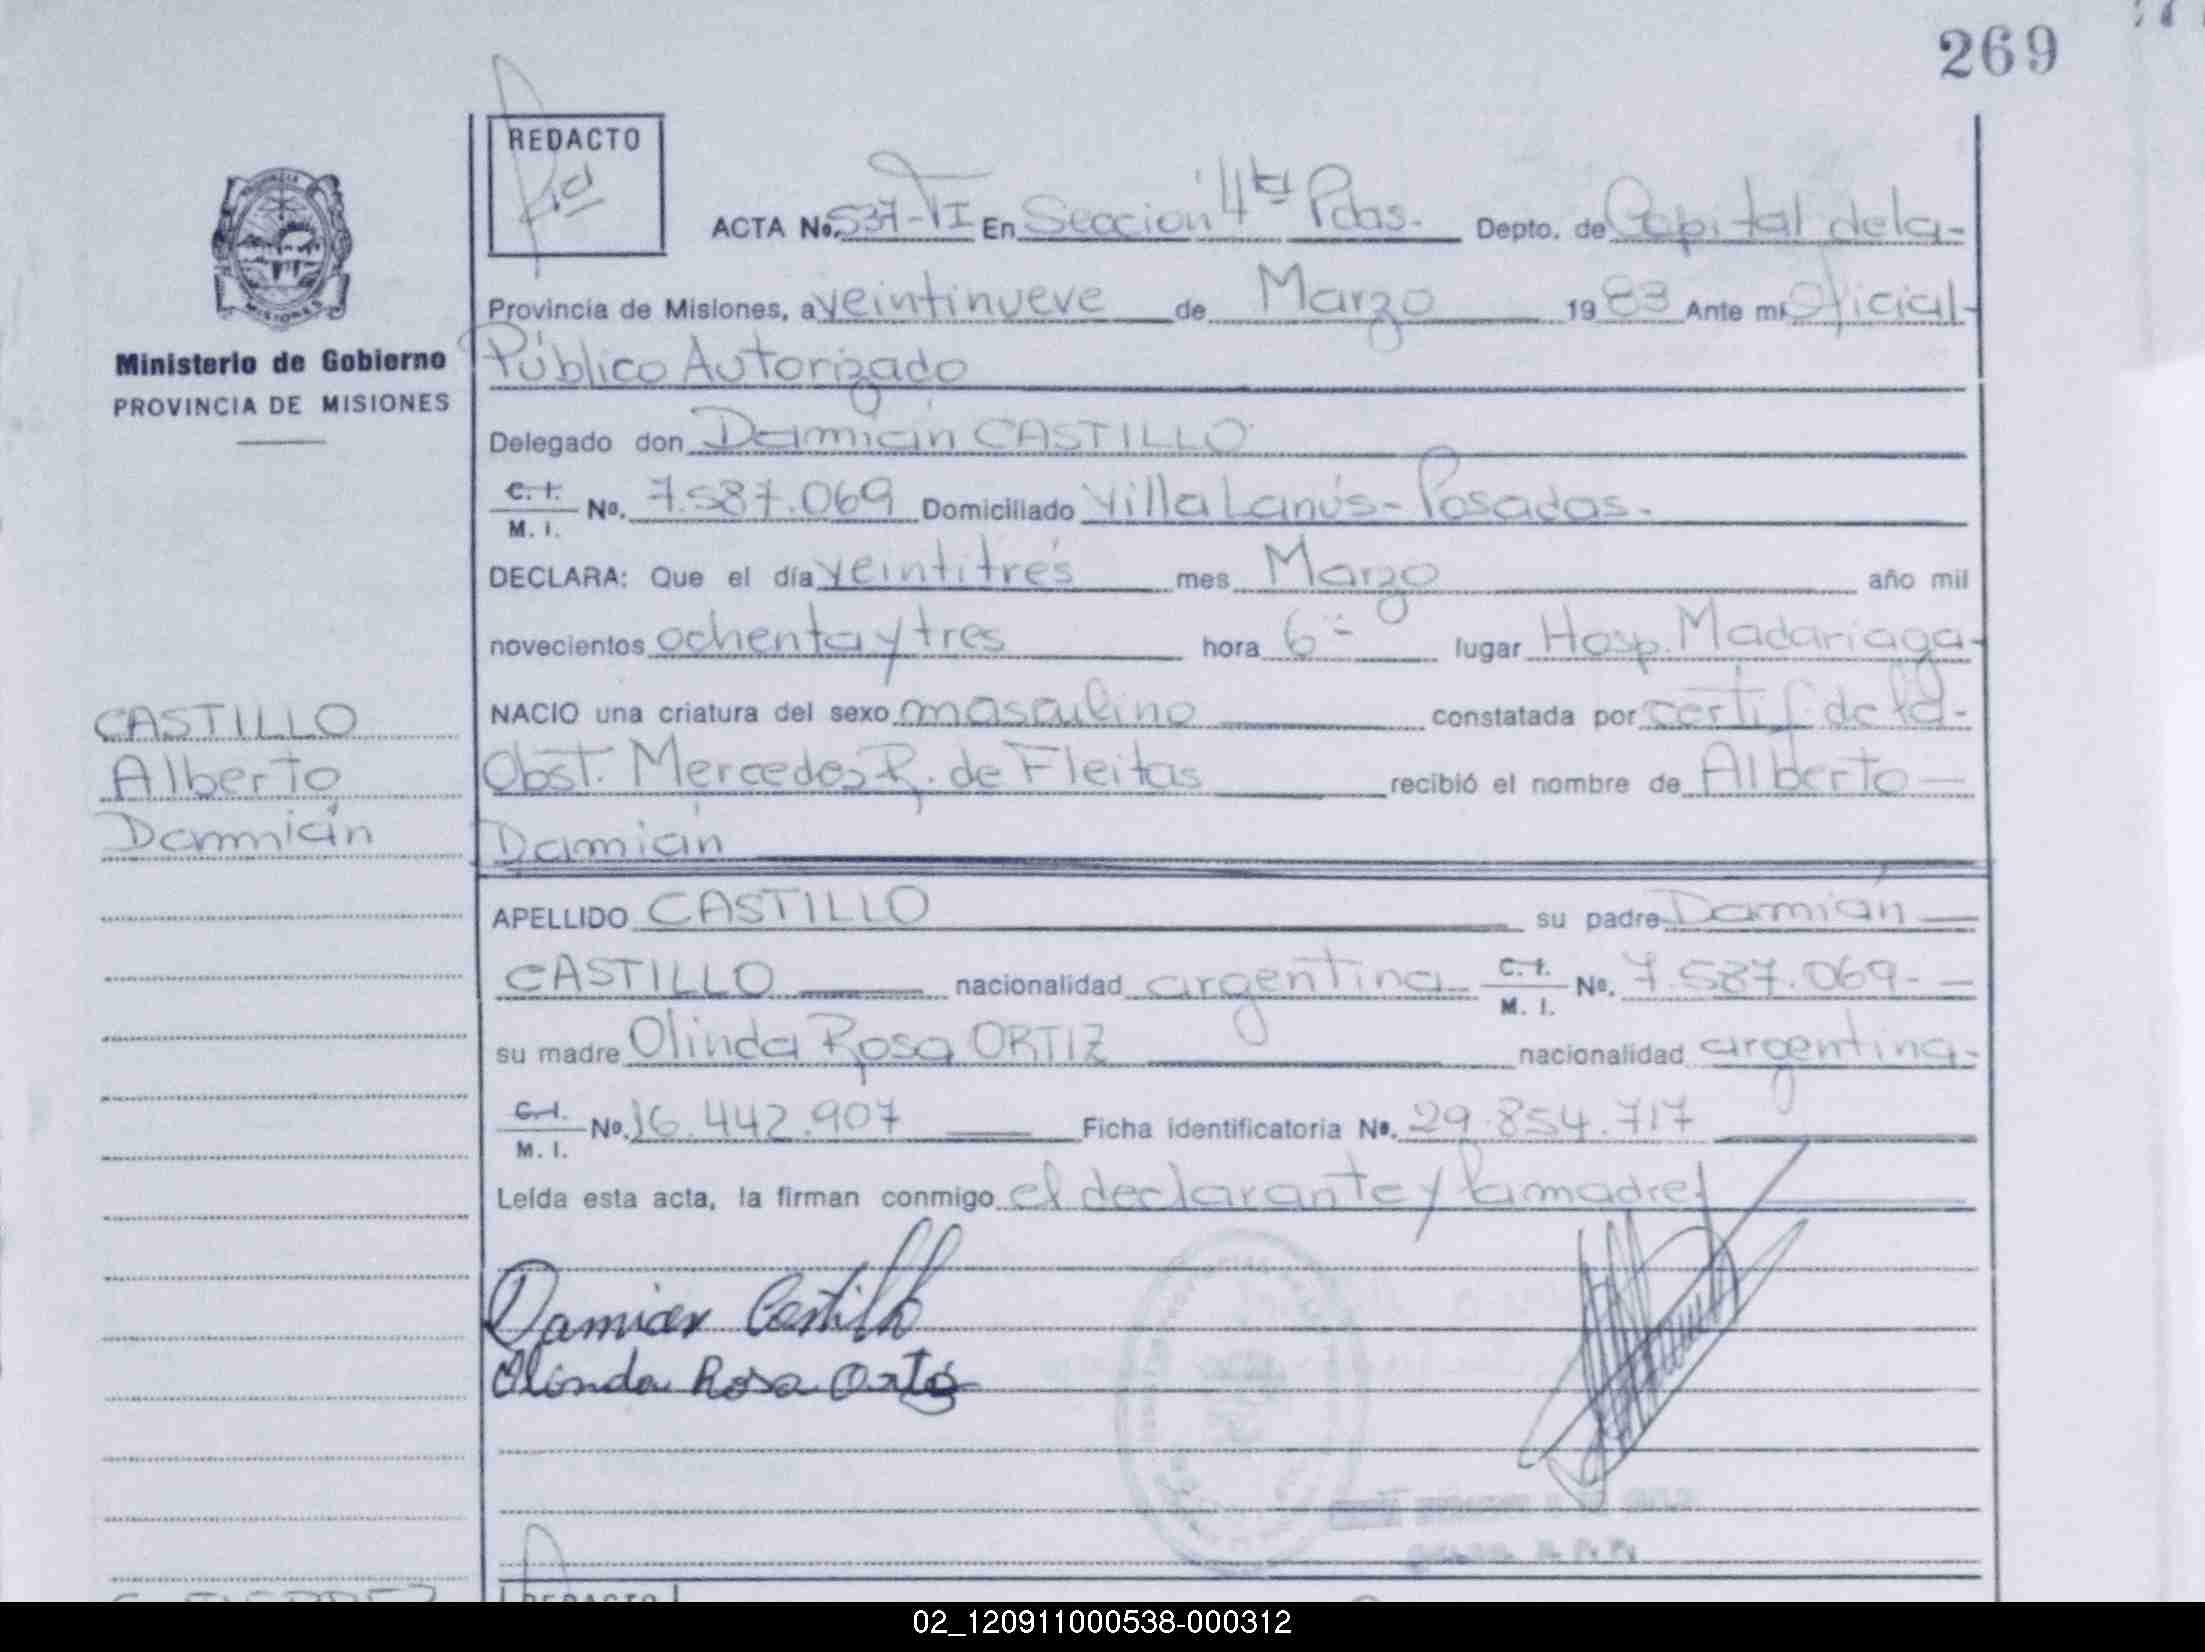 269
REDACTO
ACTA No. 537-VI En Sección 4ta Pdas. Depto. de Capital de la-
Provincia de Misiones, a veintinueve de Marzo 1983 Ante mi Oficial-
Público Autorizado
Ministerio de Gobierno
PROVINCIA DE MISIONES
Delegado don Damián CASTILLO
C. I. M. I. No. 7.587.069 Domiciliado Villa Lanús - Posadas.
DECLARA: Que el día veintitrés mes Marzo año mil
novecientos ochenta y tres hora 6 lugar Hosp. Madariaga-
NACIO una criatura del sexo masculino constatada por certif. de la-
Obst. Mercedes R. de Fleitas recibió el nombre de Alberto
Damián
CASTILLO
Alberto
Damián
APELLIDO CASTILLO su padre Damián
CASTILLO nacionalidad argentina C. I. M. I. No. 7.587.069-
su madre Olinda Rosa ORTIZ nacionalidad argentina-
C. I. M. I. No. 16.442.907 Ficha identificatoria No. 29.854.717
Leída esta acta, la firman conmigo el declarante y la madre
Damian Castillo
Olinda Rosa Ortiz
REDACTO
02_120911000538-000312